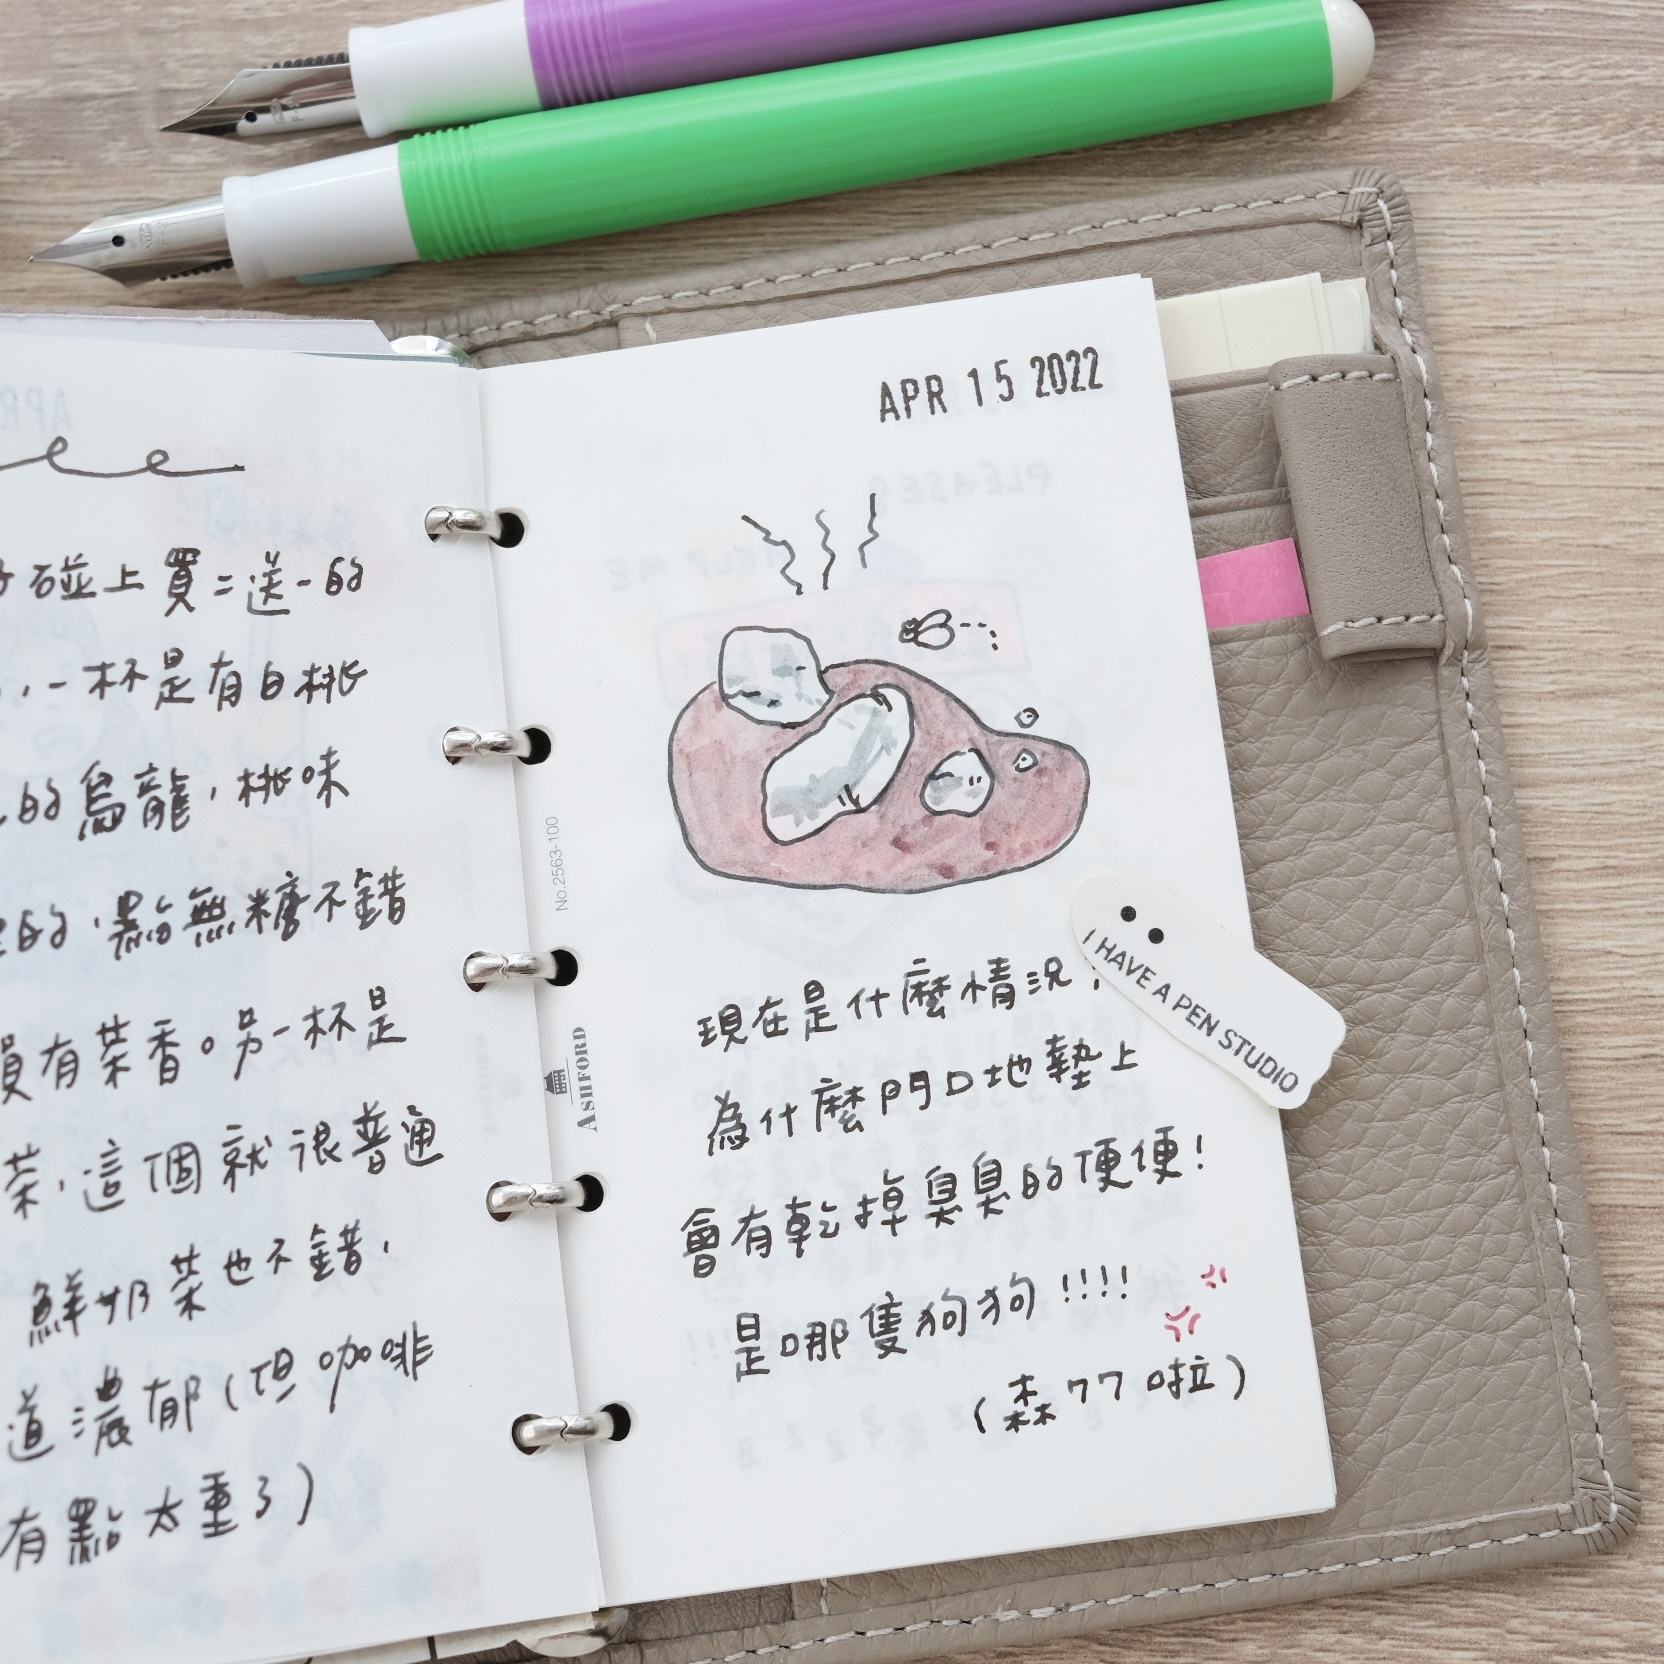 碰上買二送一的
,一杯是有白桃
的烏龍,桃味
的,點無糖不錯
有茶香。另一杯是
茶,這個就很普通
鮮奶茶也不錯,
道濃郁(但咖啡
有點太重了)
No.2563-100
ASHFORD
APR 15 2022
現在是什麼情況,
為什麼門口地墊上
會有乾掉臭臭的便便!
是哪隻狗狗!!!!
(森77啦)
I HAVE A PEN STUDIO